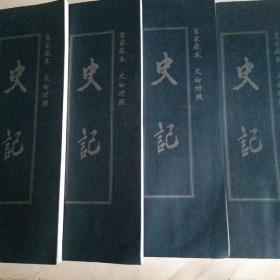 皇家藏本 文白对照
史記
皇家藏本 文白对照
史記
皇家藏本 文白对照
史記
皇家藏本 文白对照
史記